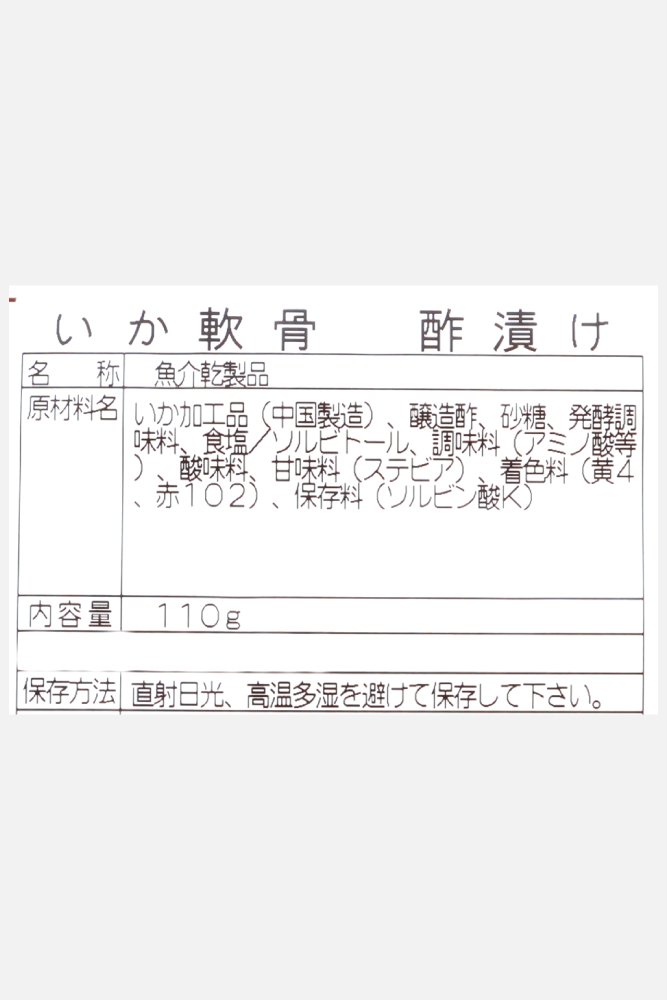 いか軟骨　酢漬け
名称　魚介乾製品
原材料名　いか加工品（中国製造）、醸造酢、砂糖、発酵調
味料、食塩／ソルビトール、調味料（アミノ酸等
）、酸味料、甘味料（ステビア）、着色料（黄４
、赤１０２）、保存料（ソルビン酸Ｋ）
内容量　１１０ｇ
保存方法　直射日光、高温多湿を避けて保存して下さい。